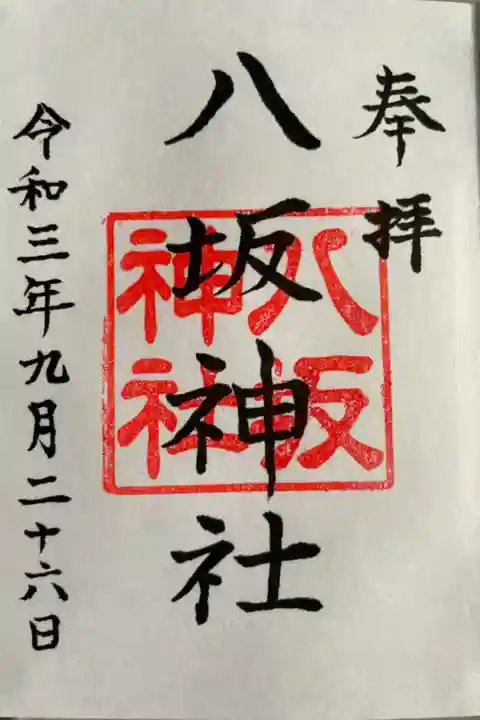 奉拝
八坂神社
八坂
神社
令和三年九月二十六日